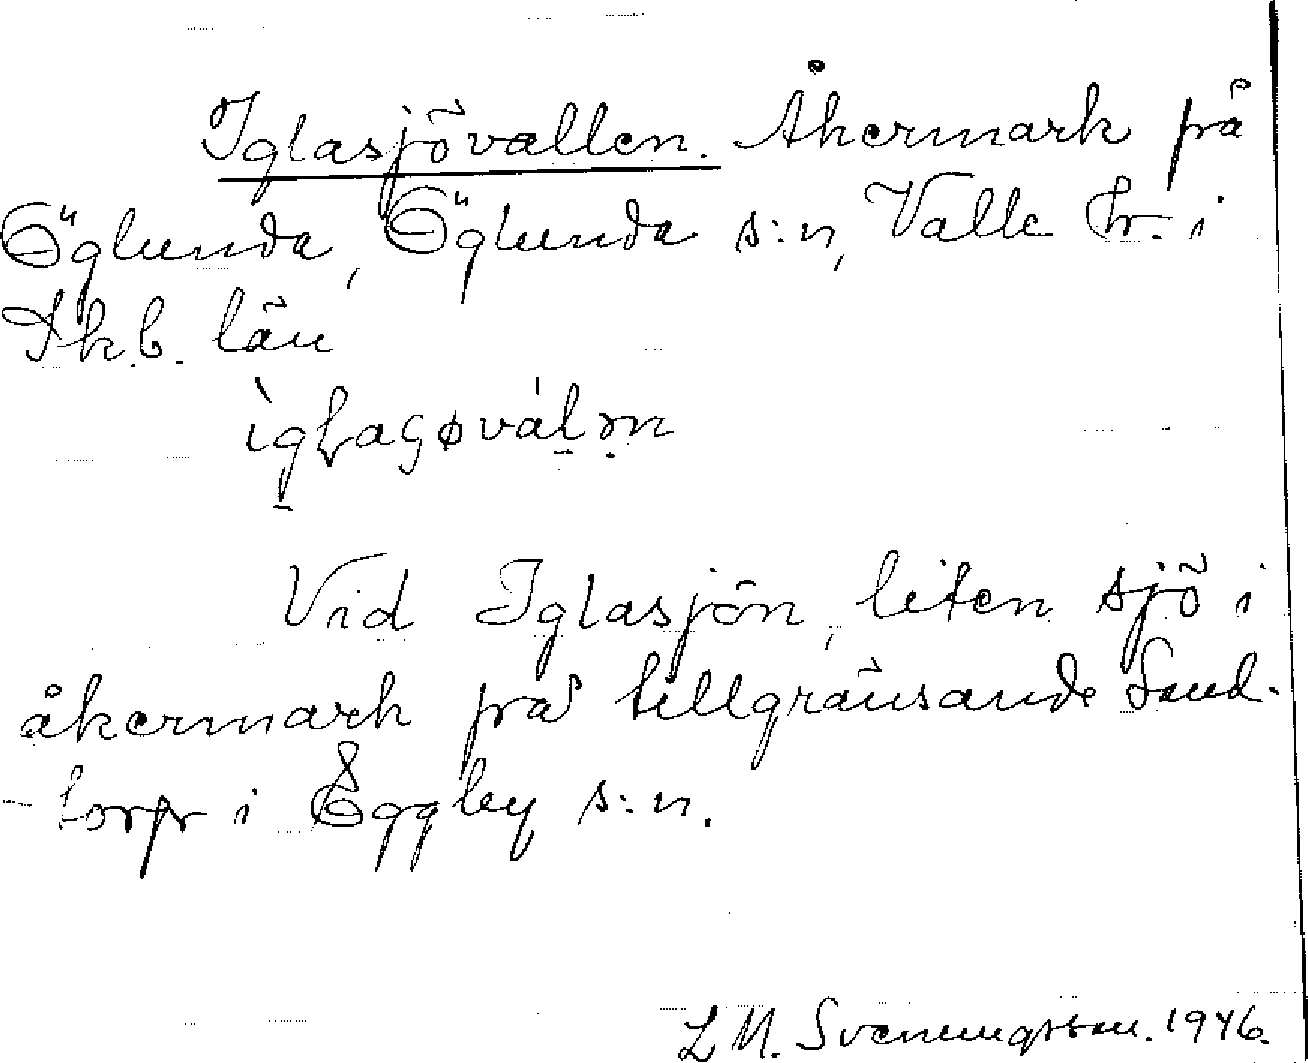 Iglasjövallen. Åkermark på
Öglunda, Öglunda s:n, Valle hr. i
Skb. län
ìgɫaʂøvál̠ən
Vid Iglasjön, liten sjö i
åkermark på tillgränsande Sand-
-torp i Eggby s:n.
L M. Svenungsson. 1946.